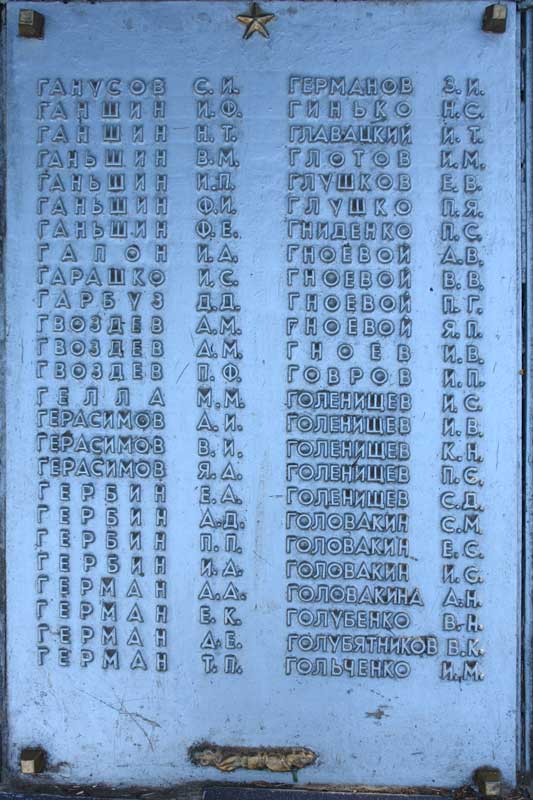 ГАНУСОВ С.И.
ГАНШИН И.Ф.
ГАНШИН Н.Т.
ГАНЬШИН В.М.
ГАНЬШИН И.П.
ГАНЬШИН Ф.И.
ГАНЬШИН Ф.Е.
ГАПОН И.А.
ГАРАШКО И.С.
ГАРБУЗ Д.Д.
ГВОЗДЕВ А.М.
ГВОЗДЕВ А.М.
ГВОЗДЕВ П.Ф.
ГЕЛЛА М.М.
ГЕРАСИМОВ А.И.
ГЕРАСИМОВ В.И.
ГЕРАСИМОВ Я.А.
ГЕРБИН Е.А.
ГЕРБИН А.Д.
ГЕРБИН П.П.
ГЕРБИН И.А.
ГЕРМАН А.А.
ГЕРМАН Е.К.
ГЕРМАН А.Е.
ГЕРМАН Т.П.
ГЕРМАНОВ З.И.
ГИНЬКО Н.С.
ГЛАВАЦКИЙ И.Т.
ГЛОТОВ И.М.
ГЛУШКОВ Е.В.
ГЛУШКО П.Я.
ГНИДЕНКО П.С.
ГНОЕВОЙ А.В.
ГНОЕВОЙ В.В.
ГНОЕВОЙ П.Г.
ГНОЕВОЙ Я.П.
ГНОЕВ И.В.
ГОВРОВ И.П.
ГОЛЕНИЩЕВ И.С.
ГОЛЕНИЩЕВ И.В.
ГОЛЕНИЩЕВ К.Н.
ГОЛЕНИЩЕВ П.С.
ГОЛЕНИЩЕВ С.Д.
ГОЛОВАКИН С.М.
ГОЛОВАКИН Е.С.
ГОЛОВАКИН И.С.
ГОЛОВАКИНА А.Н.
ГОЛУБЕНКО В.Н.
ГОЛУБЯТНИКОВ В.К.
ГОЛЬЧЕНКО И.М.